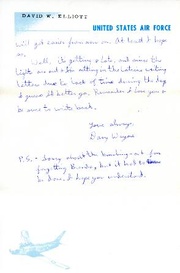 DAVID W. ELLIOTT
UNITED STATES AIR FORCE
will get easier from now on. At least I hope
so.
Well, its getting late, and since the
lights are out & I'm sitting in the latrine writing
letters
I guess I'd better go. Remember I love you
& be sure to write back.
Love always,
Dave Wayne
P.S. Sorry about the
but it had to
be done, I hope you understand.